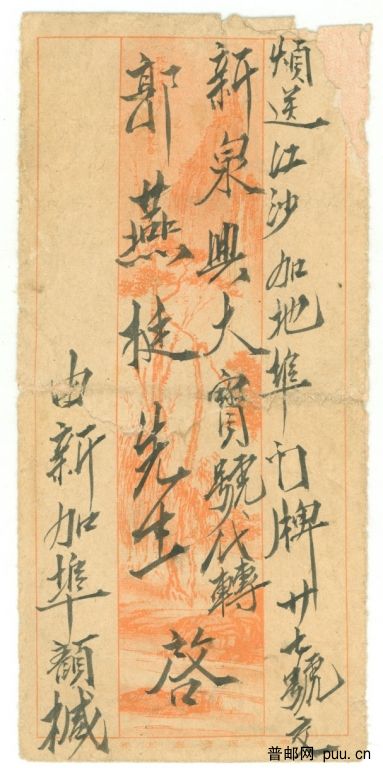 煩送江沙加地埠門牌廿七號交
新泉興大寶號代轉
郭燕桂先生 啓
由新加埠顏械
普邮网 puu.cn